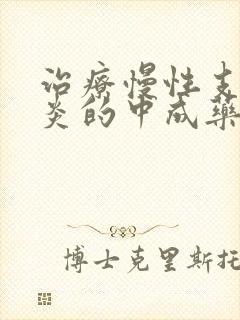 治療慢性支
炎的中成藥
博士克里斯托